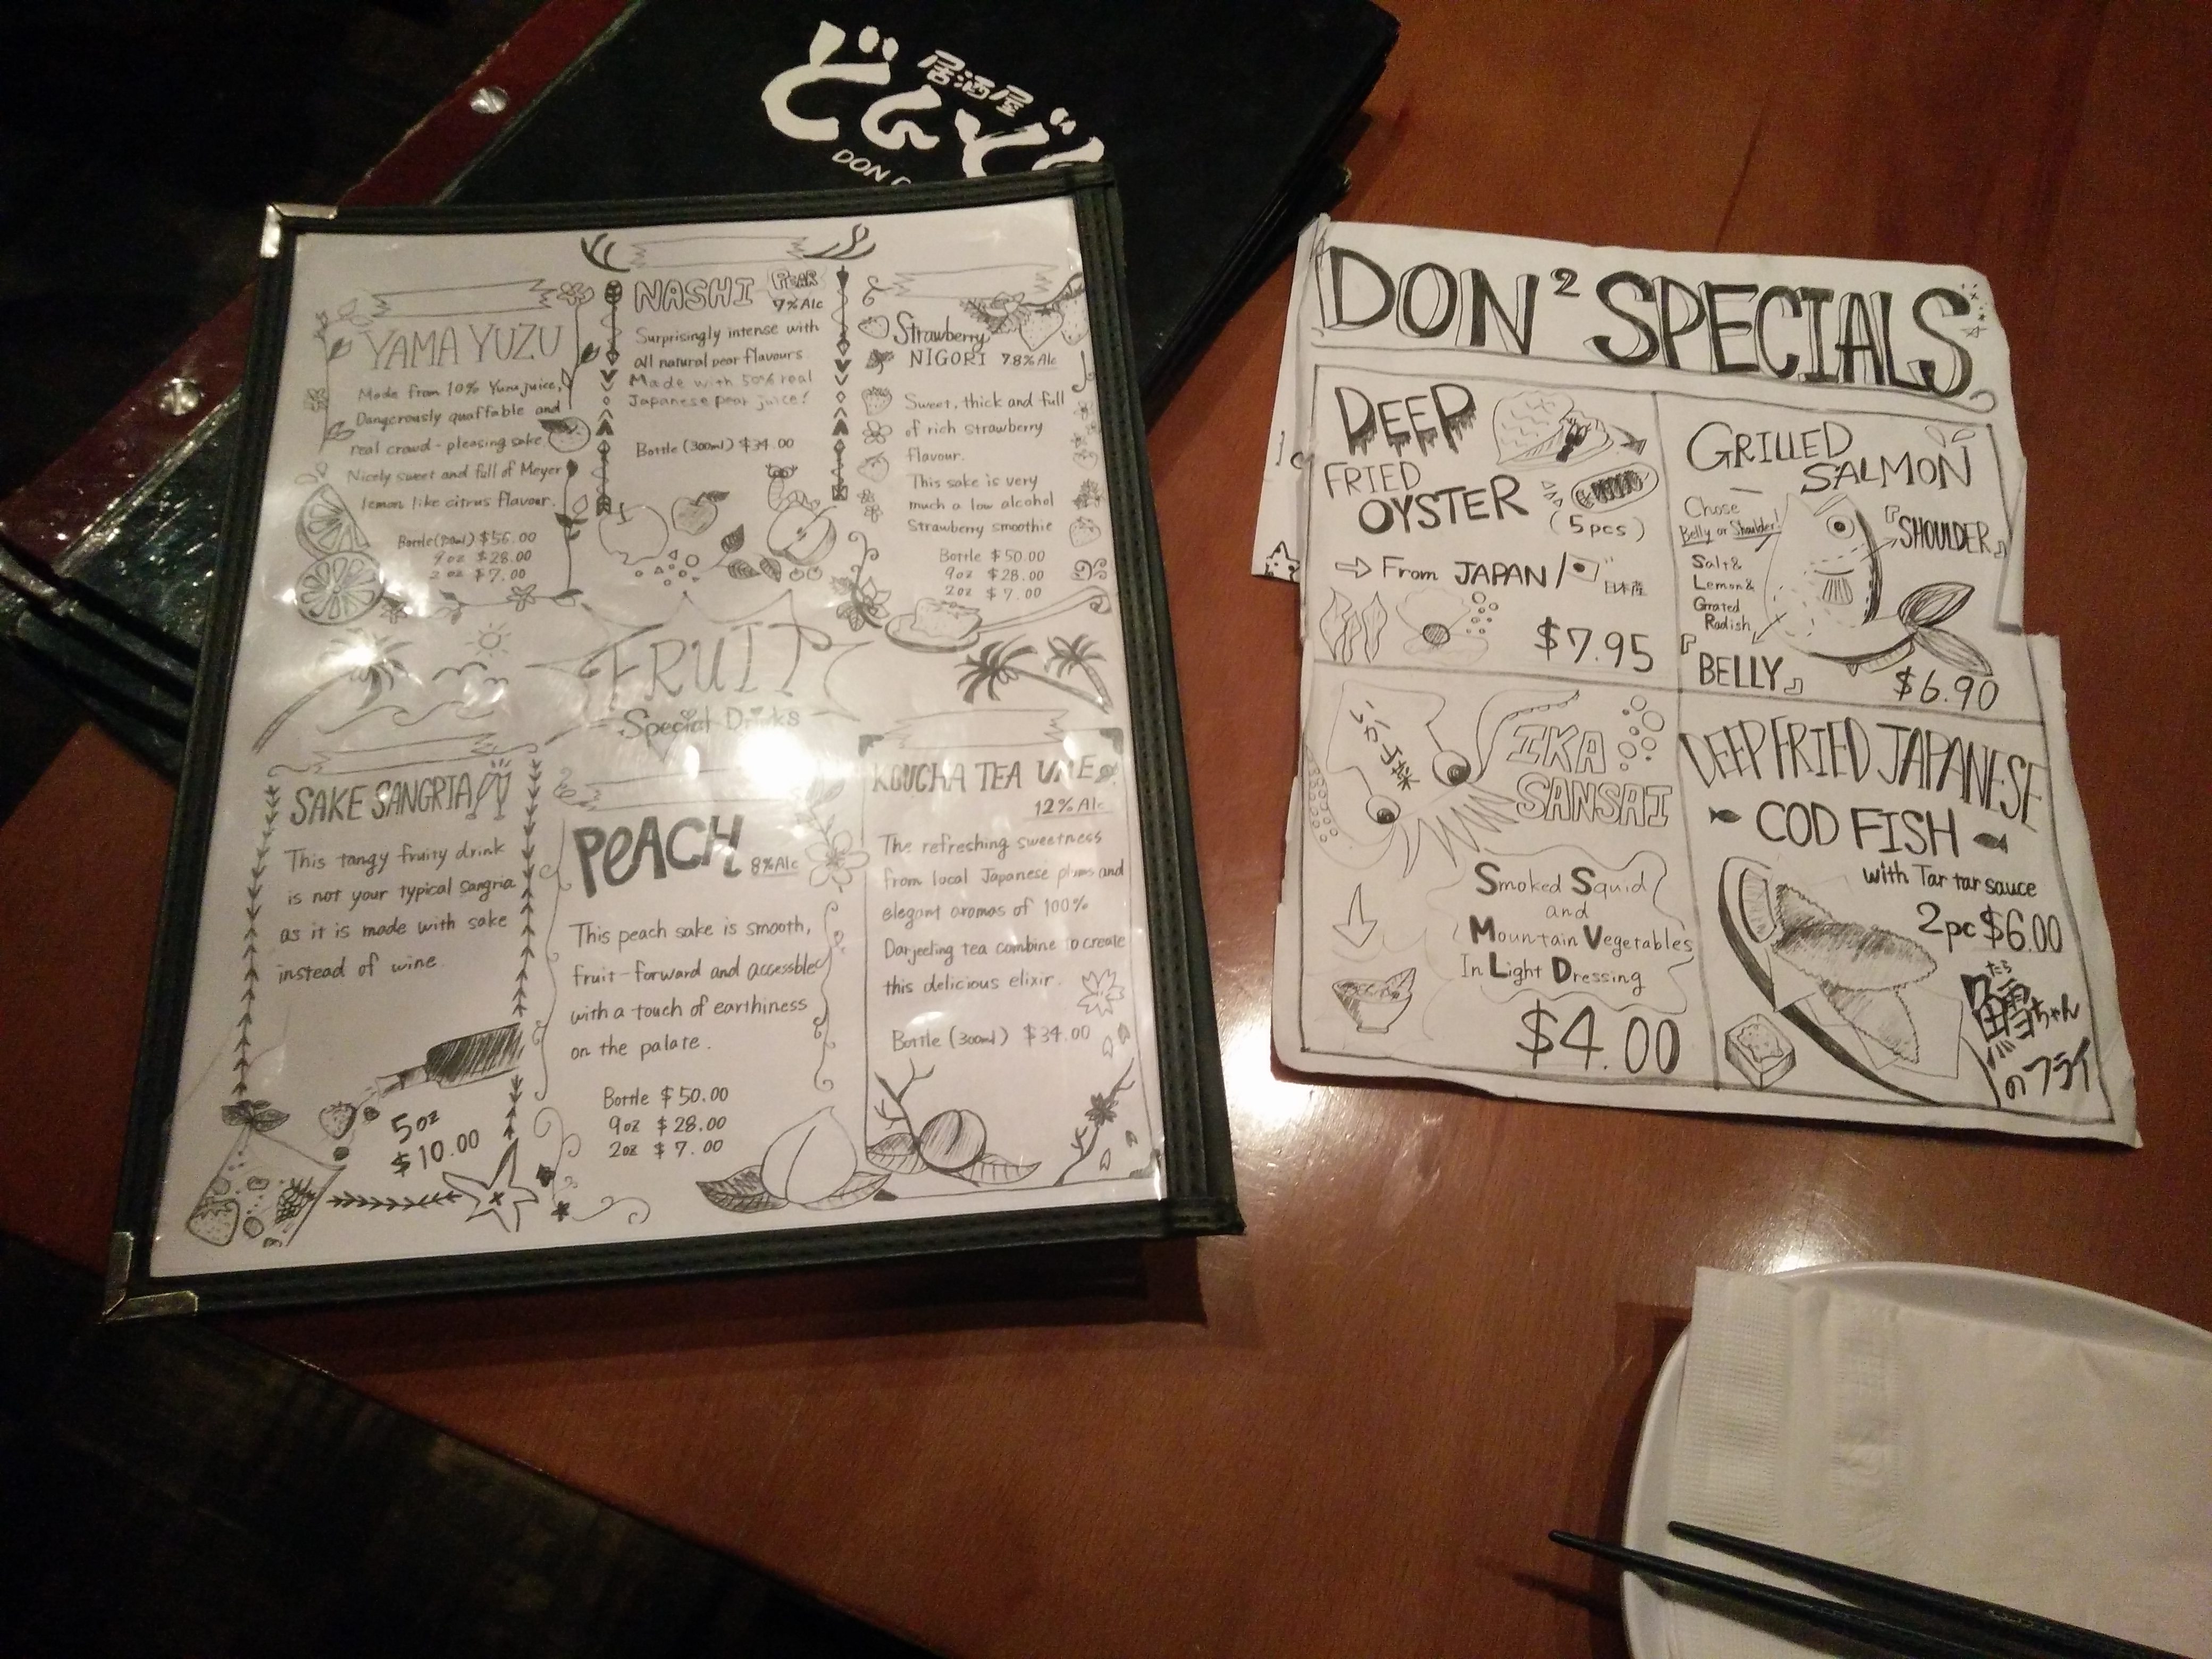 居酒屋
どんど
DON
YAMA YUZU
Made from 10% Yuzu juice,
Dangerously quaffable and
real crowd-pleasing sake
Nicely sweet and full of Meyer
lemon like citrus flavour.
$56.00
9oz $28.00
2oz $7.00
NASHI PEAR
7% Alc
Surprisingly intense with
all natural pear flavours
Made with 50% real
Japanese pear juice!
Bottle (300ml) $34.00
Strawberry
NIGORI 7.8% Alc
Sweet, thick and full
of rich strawberry
flavour.
This sake is very
much a low alcohol
Strawberry smoothie
Bottle $50.00
9oz $28.00
2oz $7.00
FRUIT
Special Drinks
SAKE SANGRIA
This tangy fruity drink
is not your typical sangria
as it is made with sake
instead of wine.
5oz
$10.00
PEACH 8% Alc
This peach sake is smooth,
fruit-forward and accessble
with a touch of earthiness
on the palate.
Bottle $50.00
9oz $28.00
2oz $7.00
KOUCHA TEA UME
12% Alc
The refreshing sweetness
from local Japanese plums and
elegant aromas of 100%
Darjeeling tea combine to create
this delicious elixir.
Bottle (300ml) $34.00
DON² SPECIALS
DEEP
FRIED
OYSTER
(5pcs)
⇒ From JAPAN / 日本産
$7.95
GRILLED
SALMON
Chose
Belly or Shoulder!
Salt &
Lemon &
Grated
Radish
『SHOULDER』
『BELLY』
$6.90
いか山菜
IKA
SANSAI
Smoked Squid
and
Mountain Vegetables
In Light Dressing
$4.00
DEEP FRIED JAPANESE
COD FISH
with Tar tar sauce
2pc $6.00
たら
鱈ちゃん
のフライ